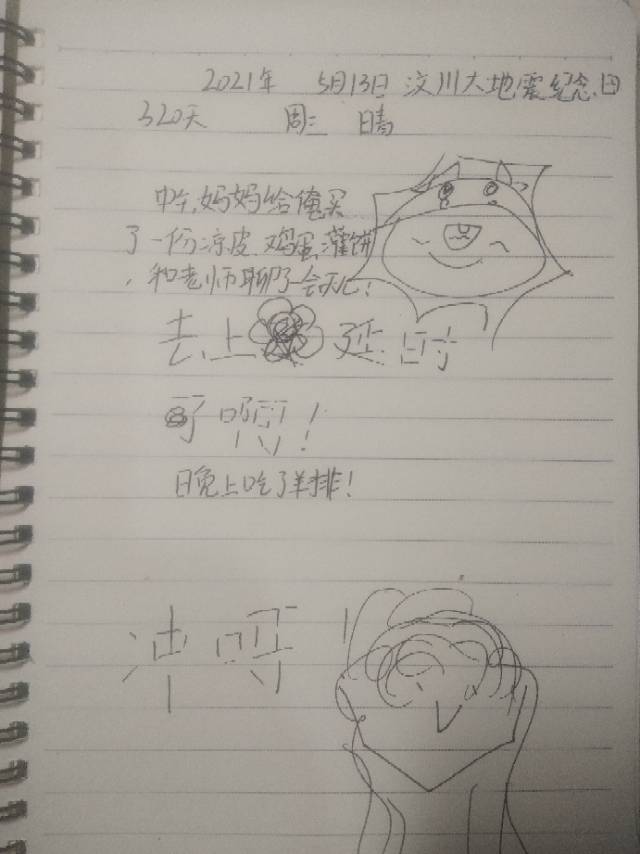 2021年 5月13日 汶川大地震纪念日
320天 周三 晴
中午,妈妈给俺买
了一份凉皮.鸡蛋灌饼
,和老师聊了一会天!
去上 延时
了 !
晚上吃了羊排!
冲 !